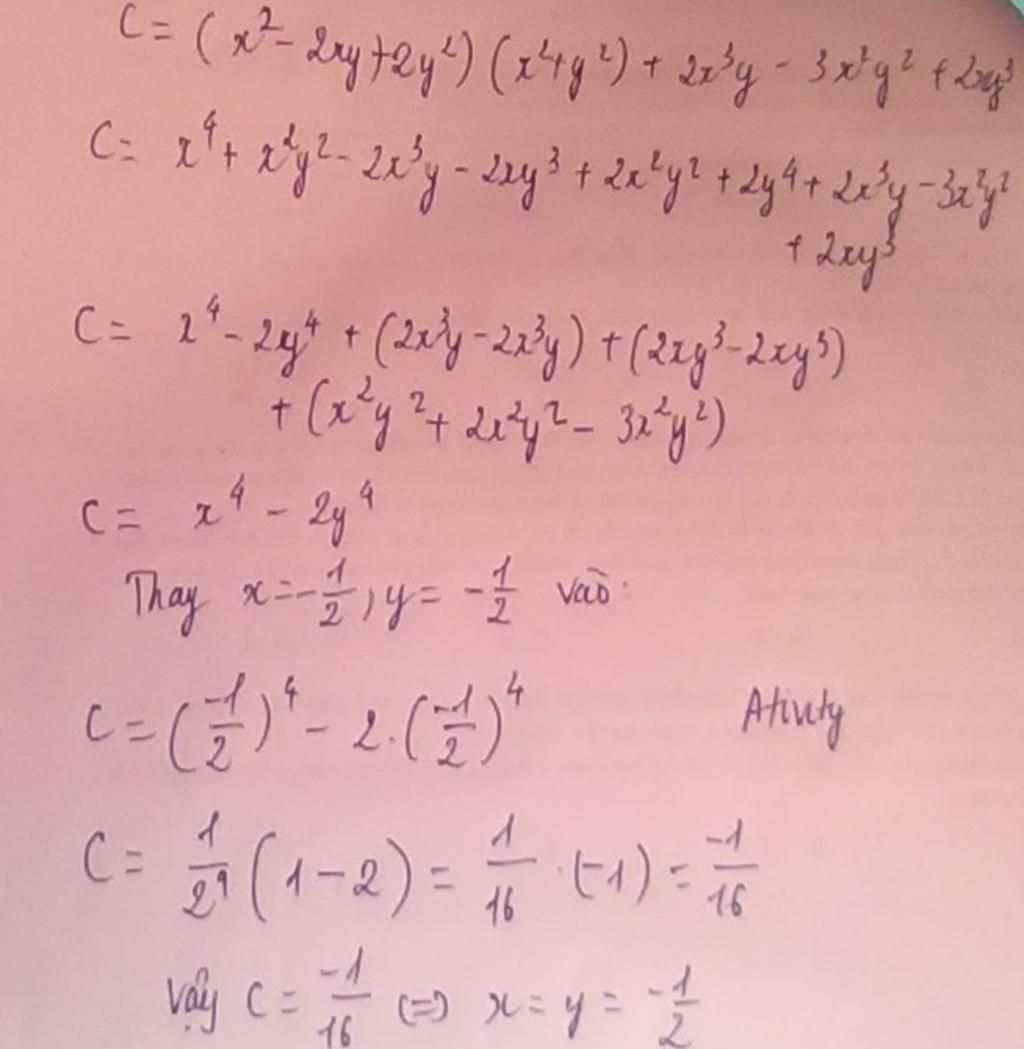 C = (x² - 2xy + 2y²) (x² + y²) + 2x³y - 3x²y² + 2xy³
C = x⁴ + x²y² - 2x³y - 2xy³ + 2x²y² + 2y⁴ + 2x³y - 3x²y²
+ 2xy³
C = x⁴ - 2y⁴ + (2x³y - 2x³y) + (2xy³ - 2xy³)
+ (x²y² + 2x²y² - 3x²y²)
C = x⁴ - 2y⁴
Thay x = -1/2, y = -1/2 vào:
C = (-1/2)⁴ - 2.(-1/2)⁴
Ativity
C = 1/2⁴ (1 - 2) = 1/16 . (-1) = -1/16
Vậy C = -1/16 (=) x = y = -1/2